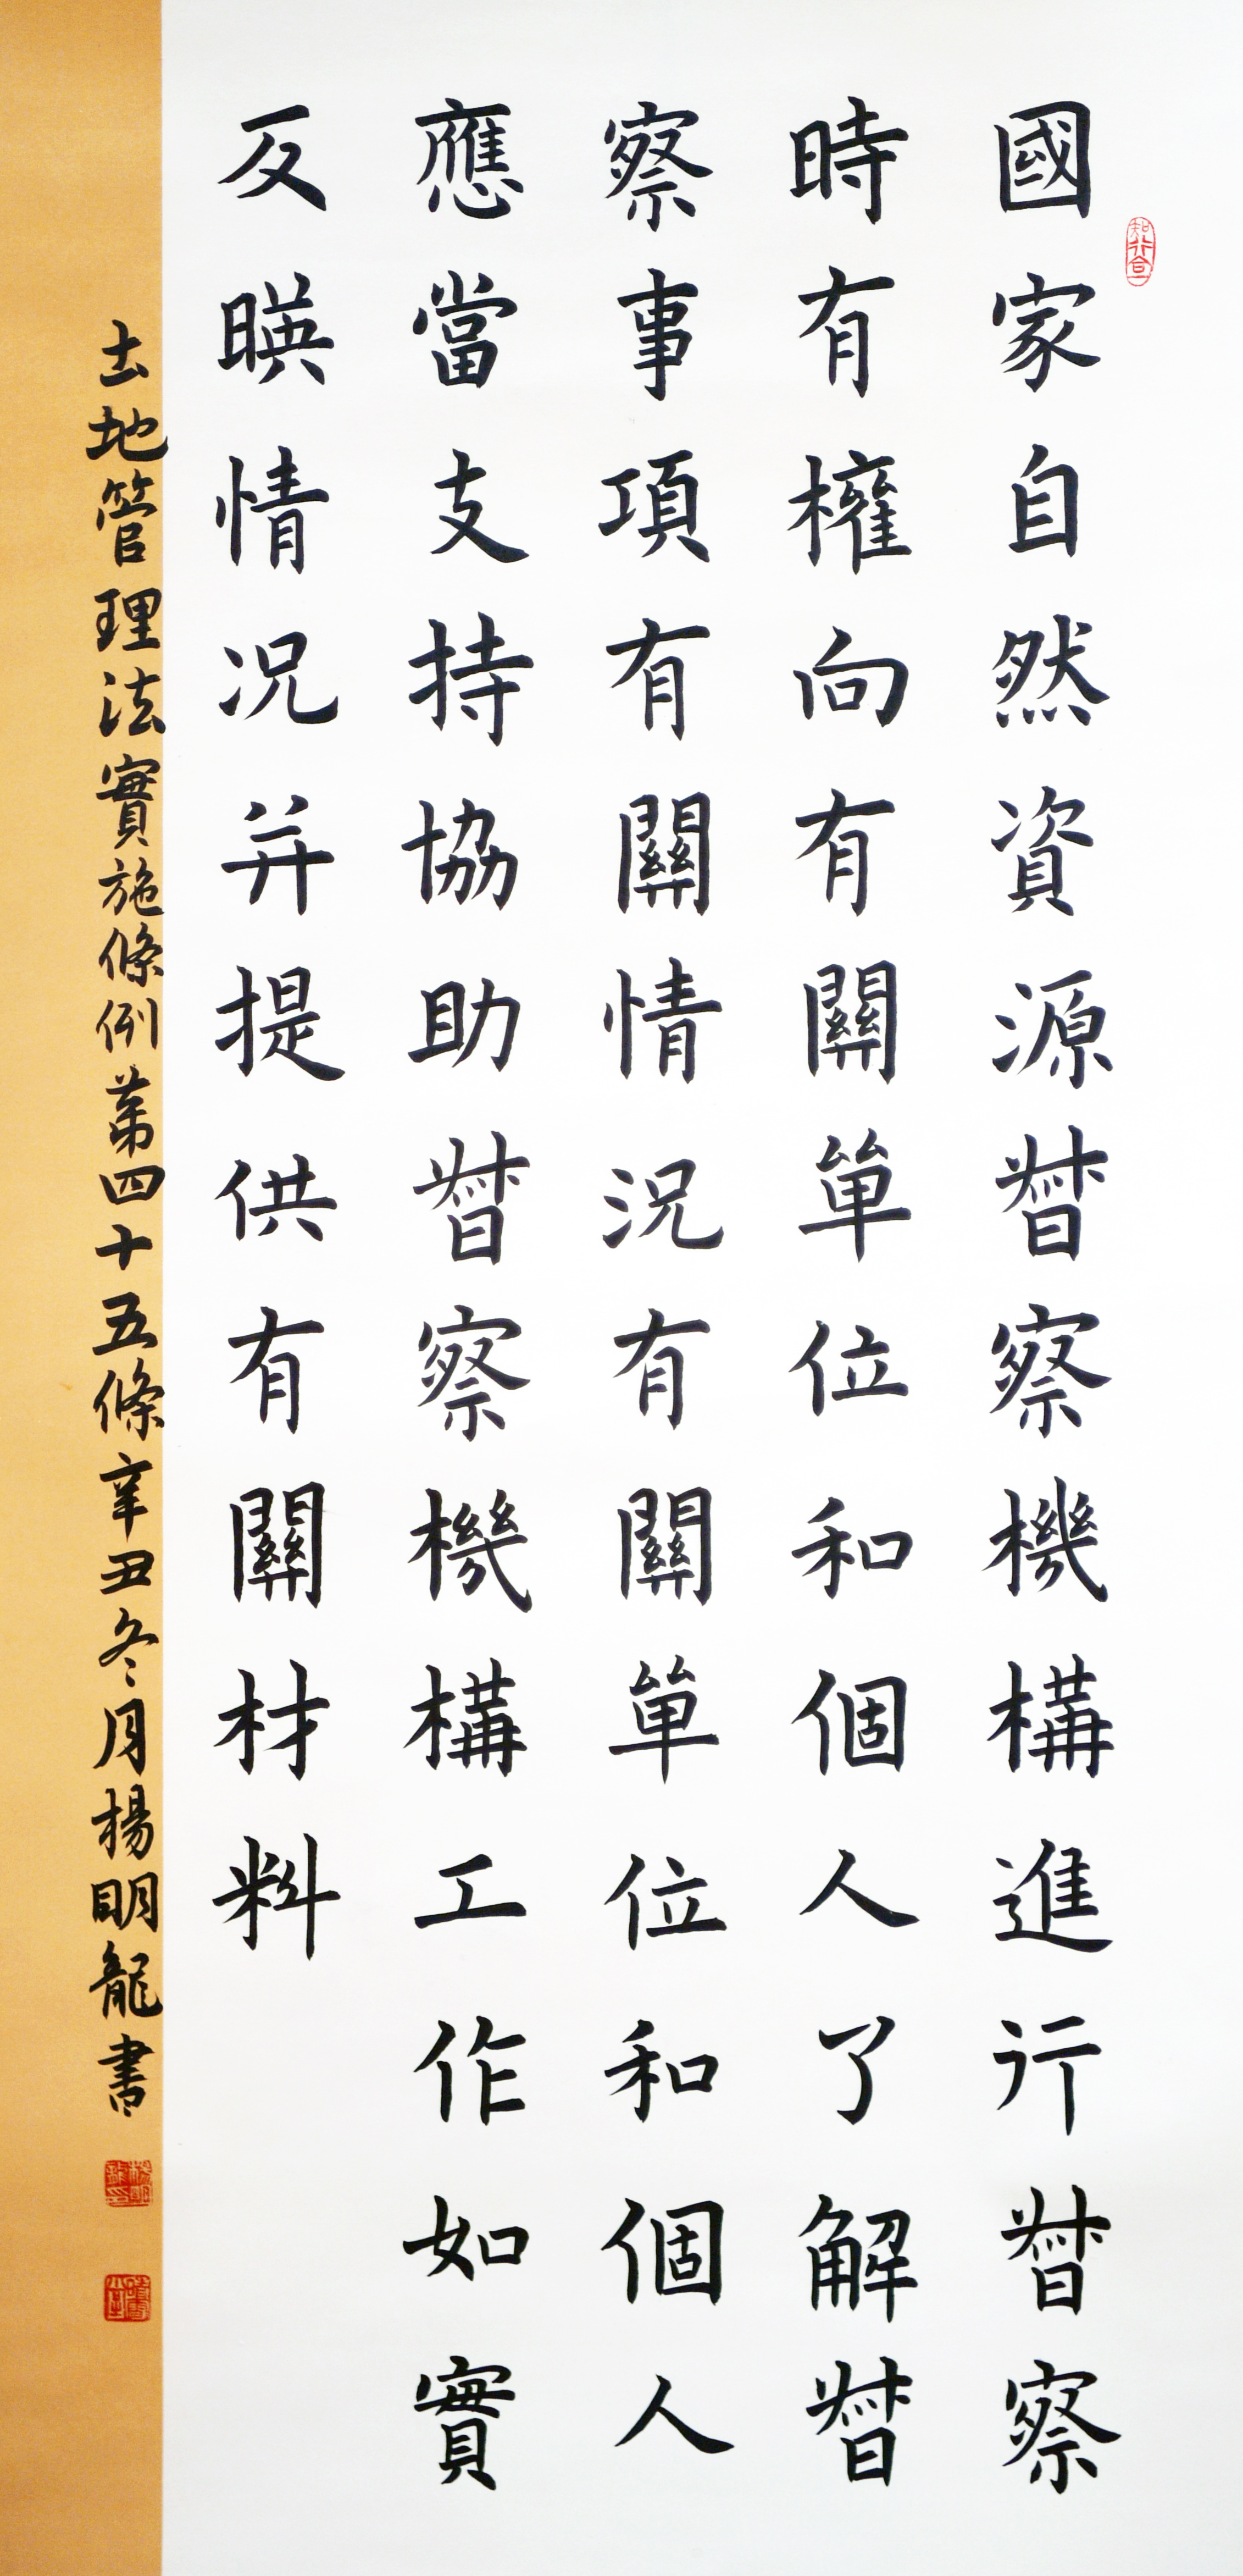 國家自然資源督察機構進行督察
時有權向有關單位和個人了解督
察事項有關情況有關單位和個人
應當支持協助督察機構工作如實
反映情況并提供有關材料
土地管理法實施條例第四十五條辛丑冬月楊明龍書
知行合一